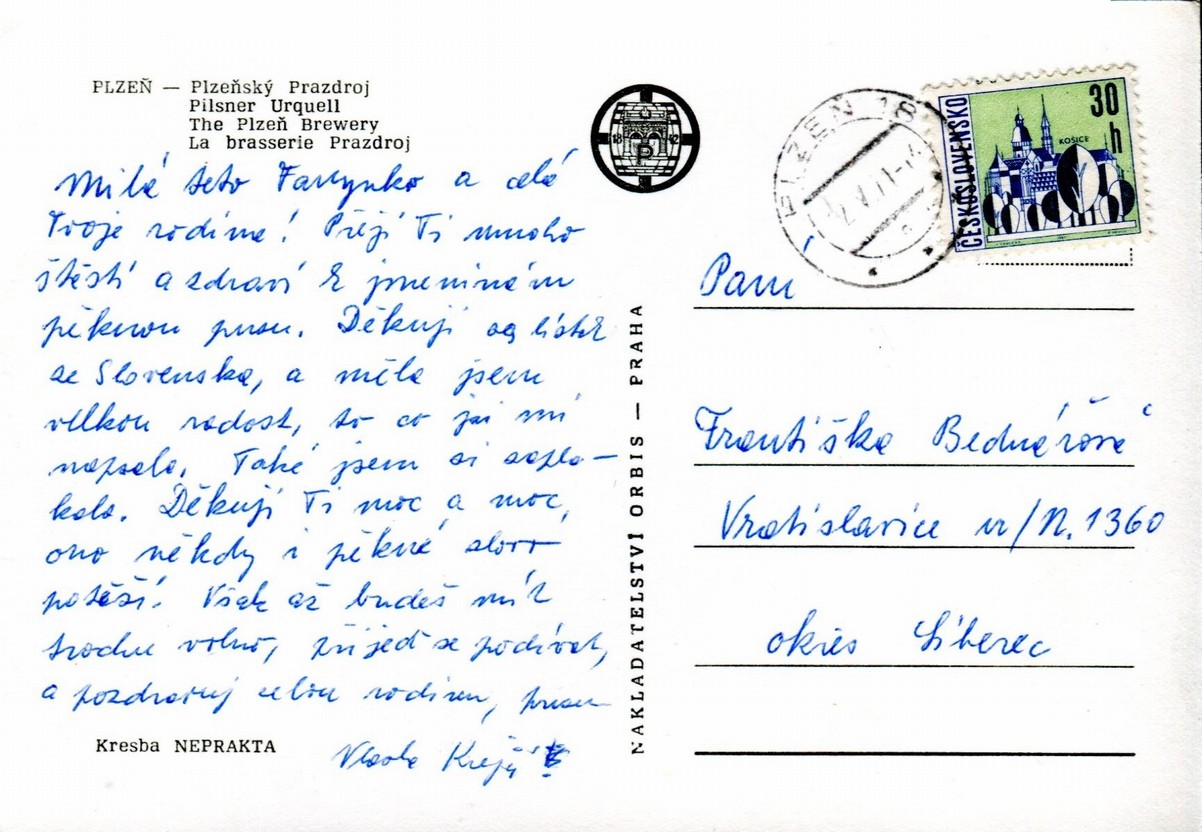 PLZEŇ — Plzeňský Prazdroj
Pilsner Urquell
The Plzeň Brewery
La brasserie Prazdroj
Milá teto a celá
Tvoje rodino! Přeji Ti mnoho
štěstí a zdraví k jmeninám
pěknou pusu. Děkuji za lístek
ze Slovenska, a měla jsem
velkou radost, to co jsi mi
napsala. Také jsem si zapla-
kala. Děkuji Ti moc a moc,
ono někdy i pěkné slovo
potěší. Však až budeš mít
trochu volno, přijeď se podívat,
a pozdravuj celou rodinu, pusu
Vlasta
Kresba NEPRAKTA
NAKLADATELSTVÍ ORBIS — PRAHA
18 P 42
PLZEŇ 18
2.V.71-14
c
ČESKOSLOVENSKO
30
h
KOŠICE
Paní
Františka Bednářová
Vratislavice n/N. 1360
okres Liberec